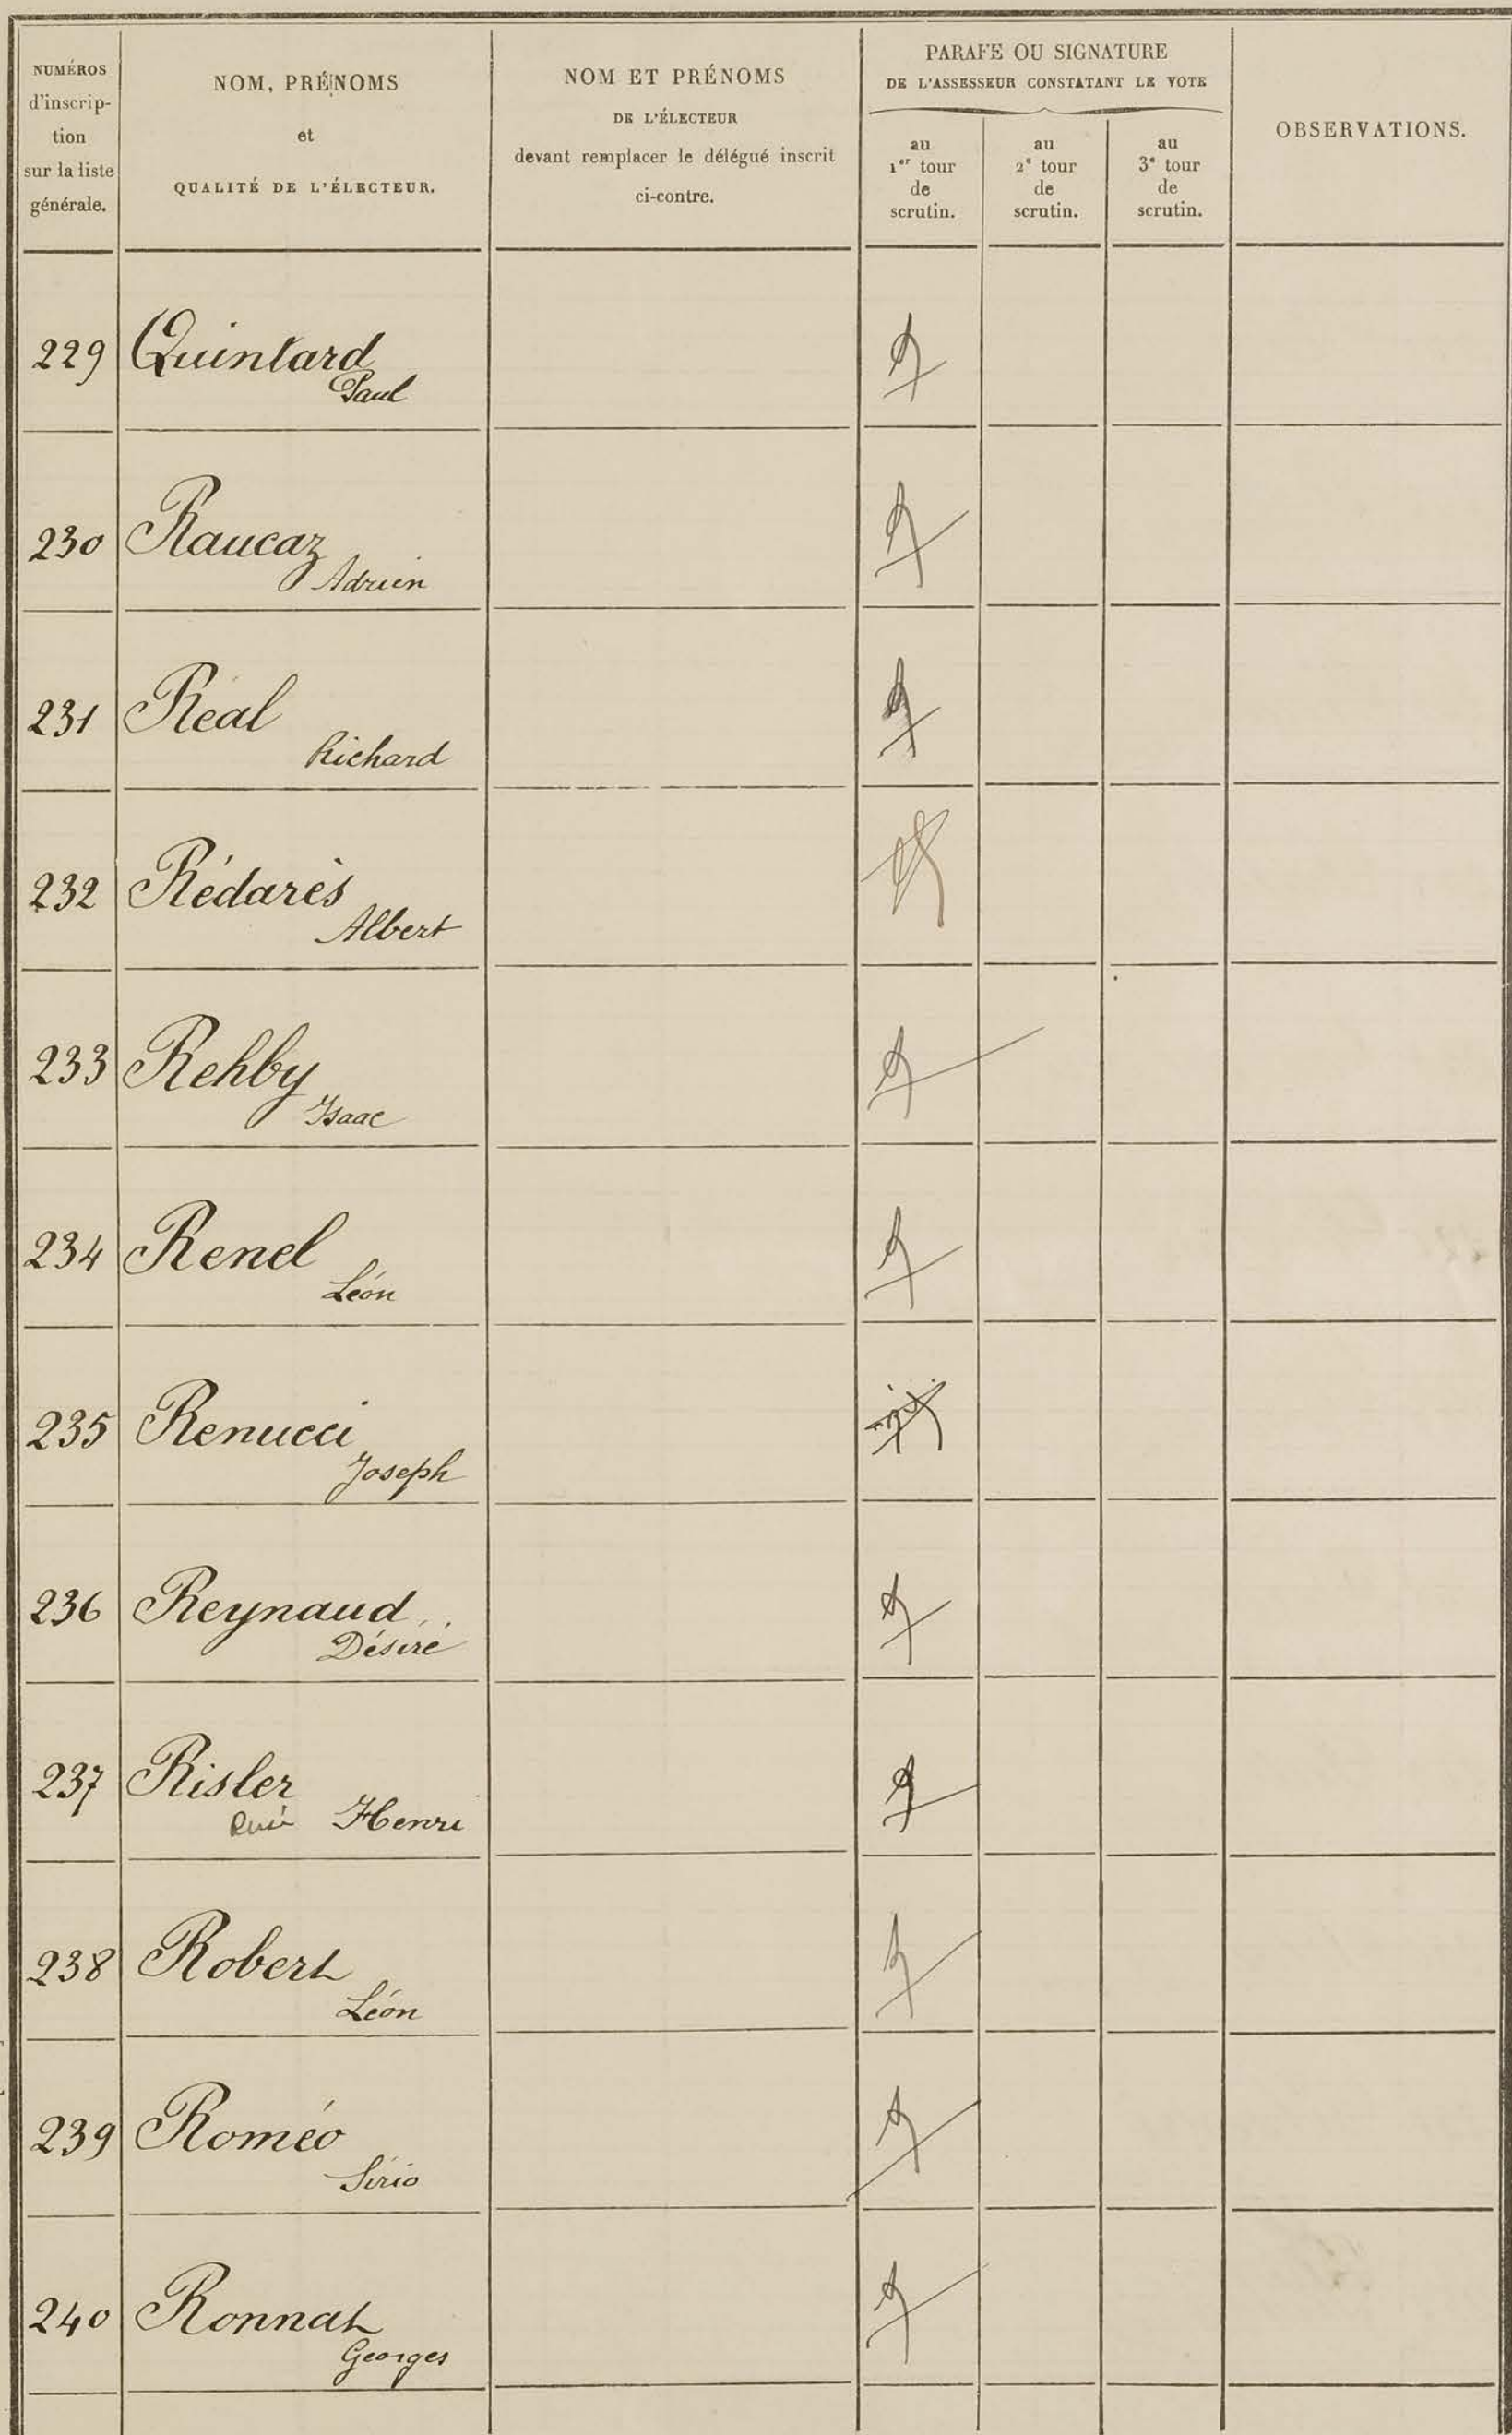 NUMÉROS
d'inscrip-
tion
sur la liste
générale.
NOM, PRÉNOMS
et
QUALITÉ DE L'ÉLECTEUR.
NOM ET PRÉNOMS
DE L'ÉLECTEUR
devant remplacer le délégué inscrit
ci-contre.
PARAFE OU SIGNATURE
DE L'ASSESSEUR CONSTATANT LE VOTE
au
1er tour
de
scrutin.
au
2e tour
de
scrutin.
au
3e tour
de
scrutin.
OBSERVATIONS.
229 Quintard
Paul
230 Raucaz
Adrien
231 Réal
Richard
232 Rédarès
Albert
233 Rehby
Isaac
234 Renel
Léon
235 Renucci
Joseph
236 Reynaud
Désiré
237 Risler
René Henri
238 Robert
Léon
239 Roméo
Sirio
240 Ronnat
Georges